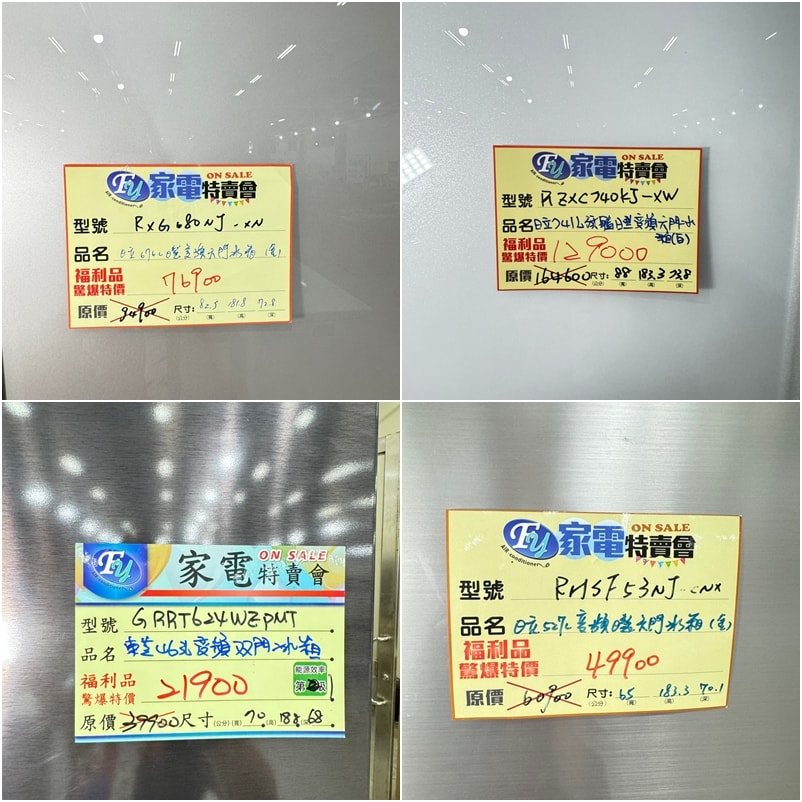 Fy 家電特賣會 ON SALE
Air-conditioner
型號 RXG680NJ-XN
品名 日立676L日變頻六門冰箱(金)
福利品
驚爆特價 76900
原價 94900 尺寸: 82.5 181.8 72.8
(公分) (寬) (高) (深)
Fy 家電特賣會 ON SALE
Air-conditioner
型號 RZXC740KJ-XW
品名 日立741L 變頻六門冰
箱(白)
福利品
驚爆特價 129000
原價 164600 尺寸: 88 183.3 73.8
(公分) (寬) (高) (深)
Fy 家電特賣會 ON SALE
型號 GRRT624WEPMT
品名 東芝463L變頻双門冰箱
福利品
驚爆特價 21900
能源效率
第 級
原價 39900 尺寸(公分)(寬) 70 (高) 188 (深) 68
Fy 家電特賣會 ON SALE
Air-conditioner
型號 RHSF53NJ-CNX
品名 日立527L變頻 六門冰箱(金)
福利品
驚爆特價 49900
原價 60900 尺寸: 65 183.3 70.1
(公分) (寬) (高) (深)